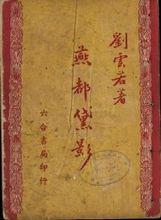 劉雲若著
燕都黛影
六合書局印行